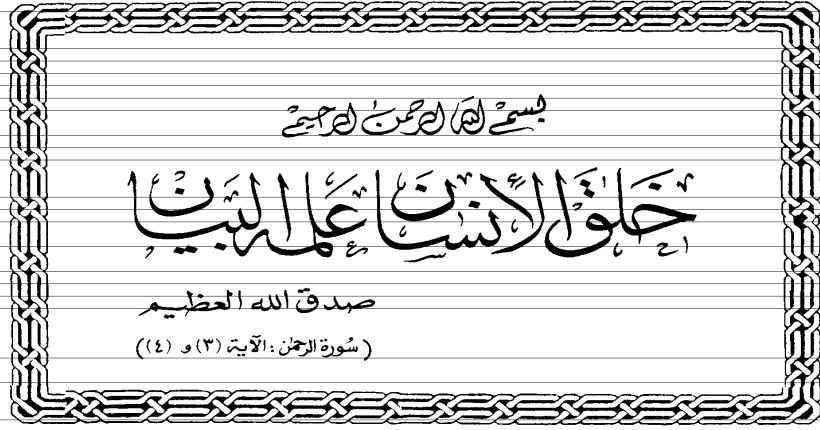 بسم الله الرحمن الرحيم
خلق الإنسان علمه البيان
صدق الله العظيم
(سورة الرحمن : الآية (٣) و (٤))